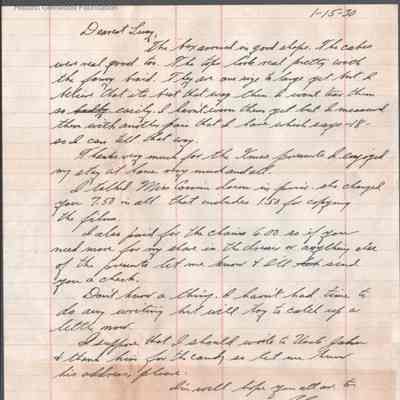 1-15-30
Dearest Lucy,
The box arrived in good shape. The cakes
was real good too. The slip look real pretty with
the fancy band. They are one size to large yet but I
believe that its best that way then I wont tear them
so badly easily. I havn't worn them yet but I measured
them with another pair that I have which says -18-
so I can tell that way.
Thanks very much for the Xmas presents I enjoyed
my stay at home very much and all.
I talked Miss down in price she charged
you 7.50 in all. that includes 1.50 for copying
the films.
I also paid for the chains 6.00 so if you
need more for my share in the dresser or anything else
of the presents let me know & Ill send
you a check.
Don't know a thing. I havn't had time to
do any writing but will try to catch up a
little now.
I suppose that I should write to Uncle John
& thank him for the candy so let me know
his address, please.
Im well hope you all are to